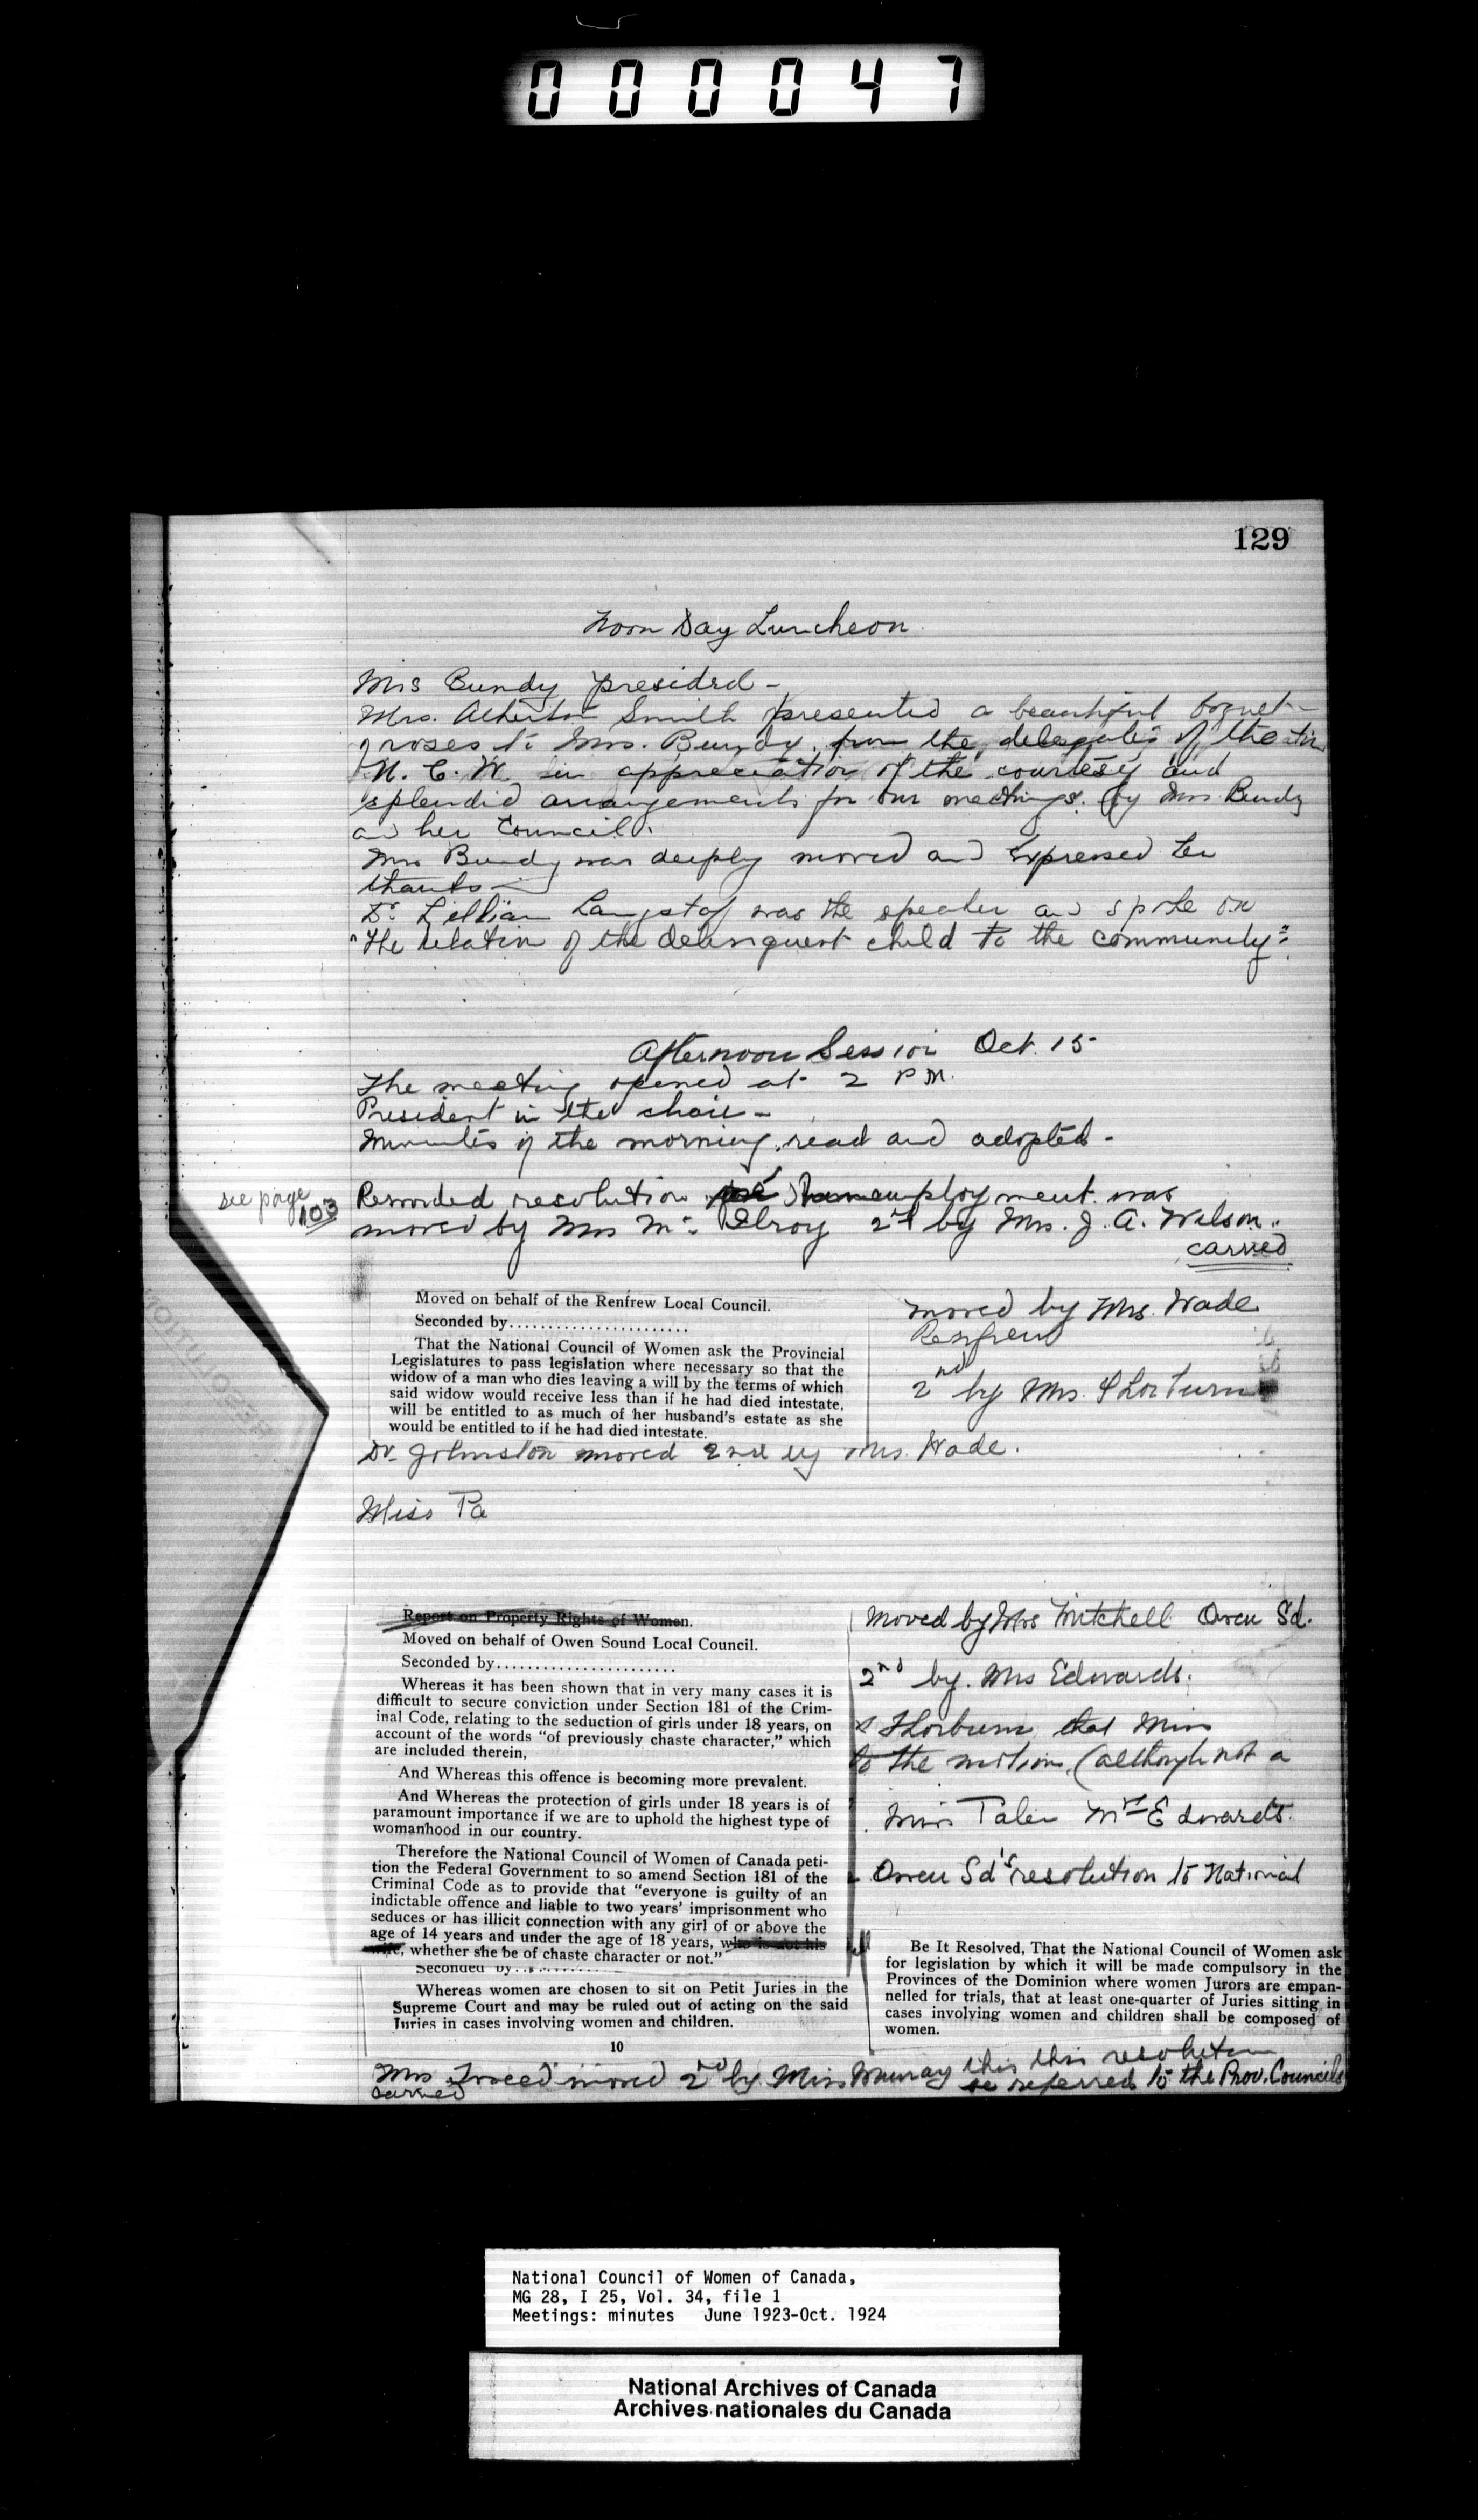 000047
129
Noon Day Luncheon
Mrs Bundy presided -
Mrs. Atherton Smith presented a beautiful boquet
roses to Mrs. Bundy. from the delegates of the
N. C. W. in appreciation of the courtesy and
splendid arrangements for our meetings. by Mrs. Bundy
and her Council.
Mrs Bundy was deeply moved and expressed her
thanks
Dr. Lillian Langstaf was the speaker and spoke on
"The relation of the delinquent child to the community".
Afternoon Session Oct. 15
The meeting opened at 2 P M.
President in the chair -
Minutes of the morning read and adopted -
see page
103
Reworded resolution re unemployment was
moved by Mrs Mc. Elroy 2nd by Mrs. J. A. Wilson.
carried
Moved on behalf of the Renfrew Local Council.
Seconded by.......................
That the National Council of Women ask the Provincial
Legislatures to pass legislation where necessary so that the
widow of a man who dies leaving a will by the terms of which
said widow would receive less than if he had died intestate,
will be entitled to as much of her husband's estate as she
would be entitled to if he had died intestate.
moved by Mrs. Wade
Renfrew
2nd by Mrs. Thorburn
Dr. Johnston moved 2nd by Mrs. Wade.
Miss Pa
RESOLUTION
Report on Property Rights of Women.
Moved on behalf of Owen Sound Local Council.
Seconded by.......................
Whereas it has been shown that in very many cases it is
difficult to secure conviction under Section 181 of the Crim-
inal Code, relating to the seduction of girls under 18 years, on
account of the words "of previously chaste character," which
are included therein,
And Whereas this offence is becoming more prevalent.
And Whereas the protection of girls under 18 years is of
paramount importance if we are to uphold the highest type of
womanhood in our country.
Therefore the National Council of Women of Canada peti-
tion the Federal Government to so amend Section 181 of the
Criminal Code as to provide that "everyone is guilty of an
indictable offence and liable to two years' imprisonment who
seduces or has illicit connection with any girl of or above the
age of 14 years and under the age of 18 years, who is not his
wife, whether she be of chaste character or not."
Moved by Mrs Mitchell Owen Sd.
2nd by. Mrs Edwards.
Thorburn that Miss
to the motion, (although not a
Miss Mrs Edwards.
Owen Sd's resolution to National
Seconded by
Whereas women are chosen to sit on Petit Juries in the
Supreme Court and may be ruled out of acting on the said
Juries in cases involving women and children.
10
Be It Resolved, That the National Council of Women ask
for legislation by which it will be made compulsory in the
Provinces of the Dominion where women Jurors are empan-
nelled for trials, that at least one-quarter of Juries sitting in
cases involving women and children shall be composed of
women.
Mrs moved 2nd by Miss Murray this this resolution
be referred to the Prov. Councils
carried
National Council of Women of Canada,
MG 28, I 25, Vol. 34, file 1
Meetings: minutes June 1923-Oct. 1924
National Archives of Canada
Archives nationales du Canada